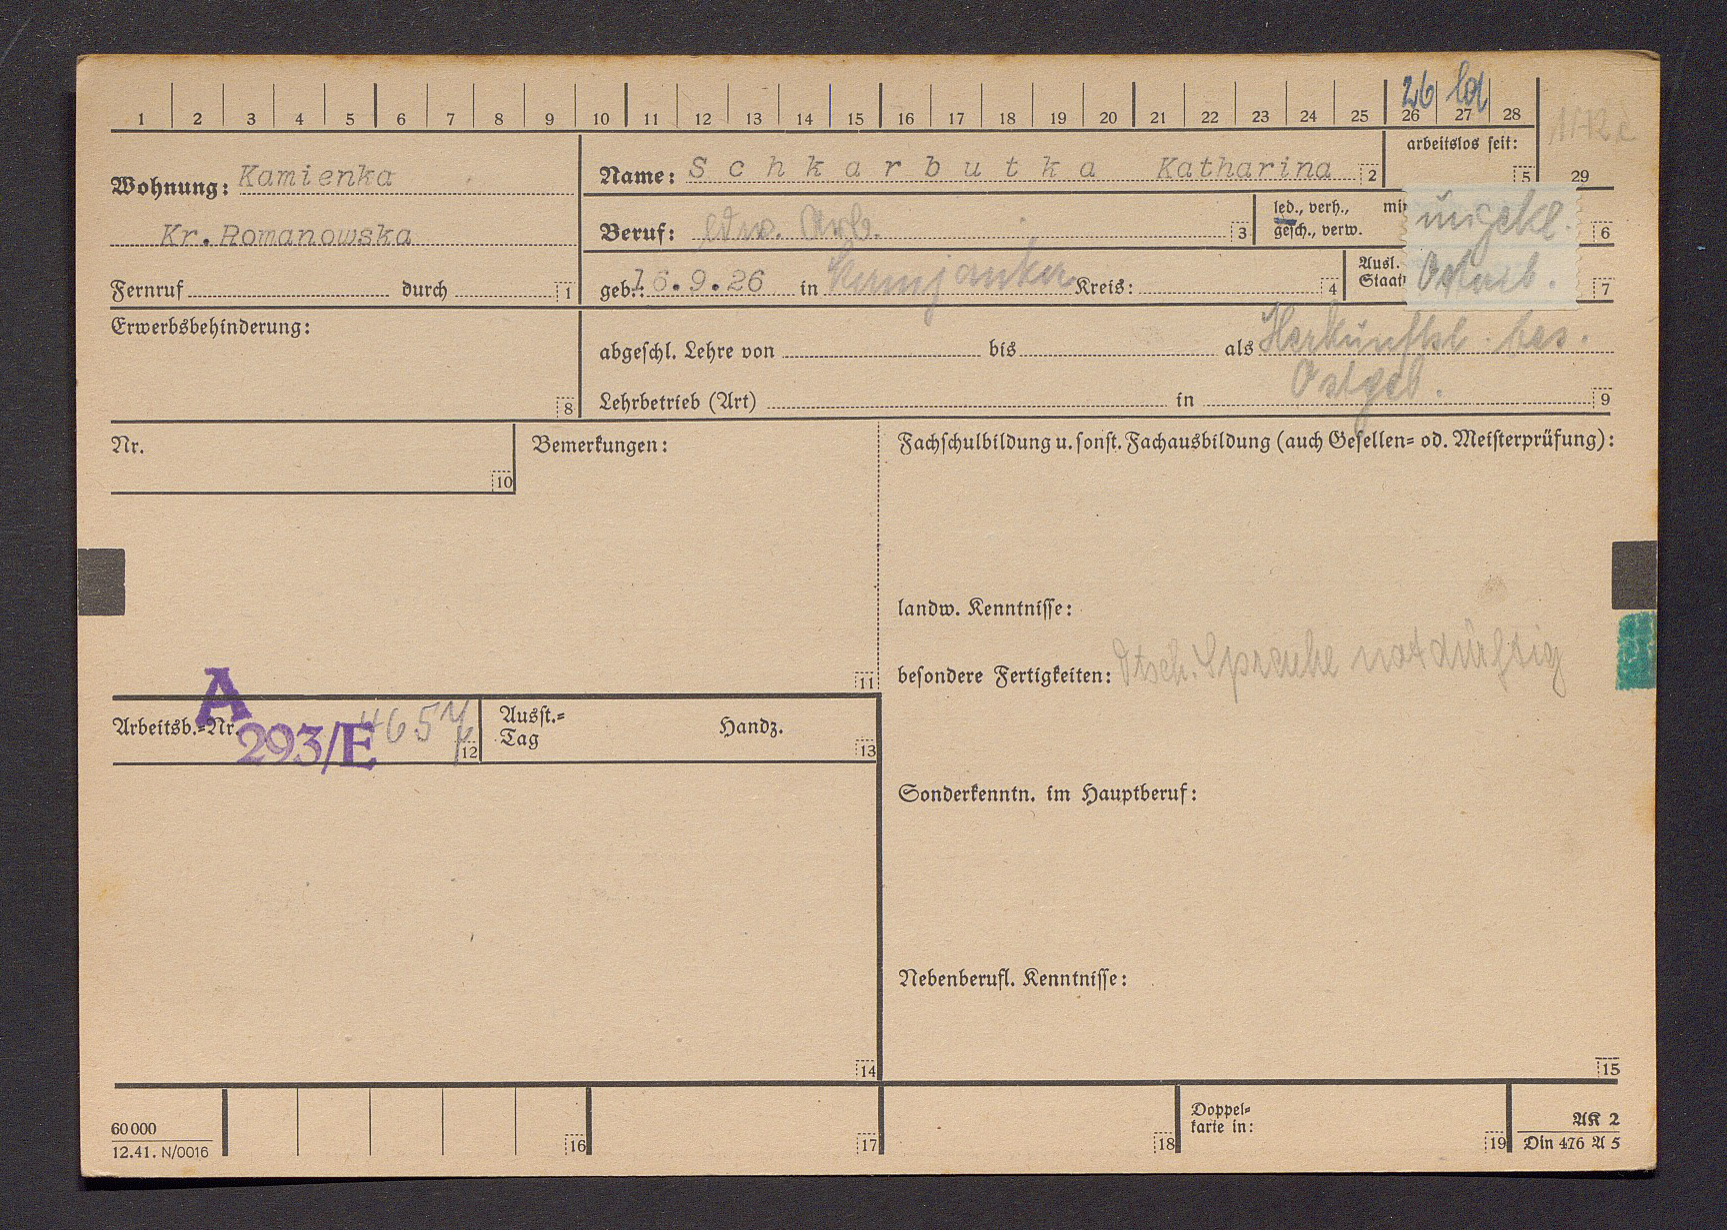 26 la
1 2 3 4 5 6 7 8 9 10 11 12 13 14 15 16 17 18 19 20 21 22 23 24 25 26 27 28
arbeitslos seit:
5 29
Wohnung: Kamienka
Kr. Romanowska
Fernruf durch 1
Name: Schkarbutka Katharina 2
Beruf: ldw. Arb. 3
led., verh., mi
gesch., verw.
ungekl. 6
geb.: 16.9.26 in Kamjanka Kreis: 4
Ausl.
Staat
Ostarb. 7
Erwerbsbehinderung:
8
abgeschl. Lehre von bis als Herkunftsl. bes.
Ostgeb.
Lehrbetrieb (Art) in 9
Nr.
10
Bemerkungen:
11
Fachschulbildung u. sonst. Fachausbildung (auch Gesellen= od. Meisterprüfung):
landw. Kenntnisse:
besondere Fertigkeiten: Dtsch. Sprache notdürftig
A
Arbeitsb.=Nr. 293/E 4657 12
Ausst.=
Tag
Handz.
13
Sonderkenntn. im Hauptberuf:
Nebenberufl. Kenntnisse:
14
15
60 000
12.41. N/0016
16
17
18
Doppel=
karte in:
19
AK 2
Din 476 A 5